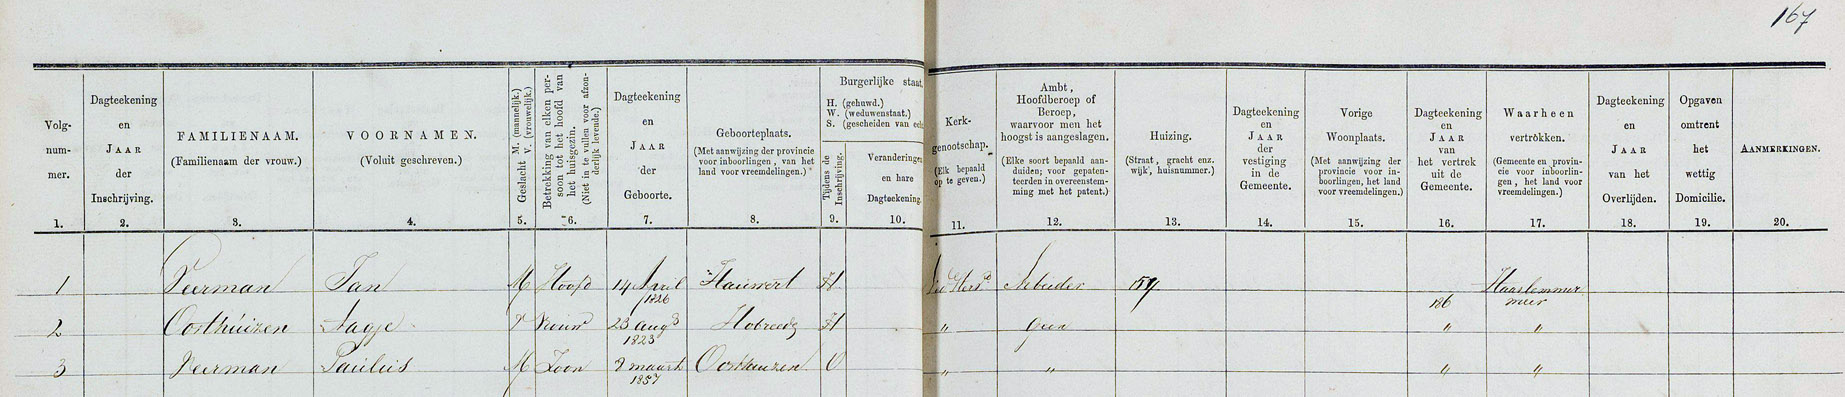 167
Volg-
num-
mer.
1.
Dagteekening
en
JAAR
der
Inschrijving.
2.
FAMILIENAAM.
(Familienaam der vrouw.)
3.
VOORNAMEN.
(Voluit geschreven.)
4.
Geslacht M. (mannelijk.)
V. (vrouwelijk.)
5.
Betrekking van elken per-
soon tot het hoofd van
het huisgezin.
(Niet in te vullen voor afzon-
derlijk levende.)
6.
Dagteekening
en
JAAR
der
Geboorte.
7.
Geboorteplaats.
(Met aanwijzing der provincie
voor inboorlingen, van het
land voor vreemdelingen.)
8.
Burgerlijke staat,
H. (gehuwd.)
W. (weduwenstaat.)
S. (gescheiden van echt
Tijdens de
Inschrijving.
9.
Veranderingen
en hare
Dagteekening.
10.
Kerk-
genootschap.
(Elk bepaald
op te geven.)
11.
Ambt,
Hoofdberoep of
Beroep,
waarvoor men het
hoogst is aangeslagen.
(Elke soort bepaald aan-
duiden; voor gepaten-
teerden in overeenstem-
ming met het patent.)
12.
Huizing.
(Straat, gracht enz.
wijk, huisnummer.)
13.
Dagteekening
en
JAAR
der
vestiging
in de
Gemeente.
14.
Vorige
Woonplaats.
(Met aanwijzing der
provincie voor in-
boorlingen, het land
voor vreemdelingen.)
15.
Dagteekening
en
JAAR
van
het vertrek
uit de
Gemeente.
16.
Waarheen
vertrokken.
(Gemeente en provin-
cie voor inboorlin-
gen, het land voor
vreemdelingen.)
17.
Dagteekening
en
JAAR
van het
Overlijden.
18.
Opgaven
omtrent
het
wettig
Domicilie.
19.
AANMERKINGEN.
20.
1 Veerman Jan M Hoofd 14 April 1826 Hauwert H Arbeider 59 186 Haarlemmer
meer
2 Oosthuizen Aagje V Vrouw 23 aug 1823 Hobreede H " Geen " "
3 Veerman Paulus M Zoon 8 maart 1857 Oosthuizen O " " " "